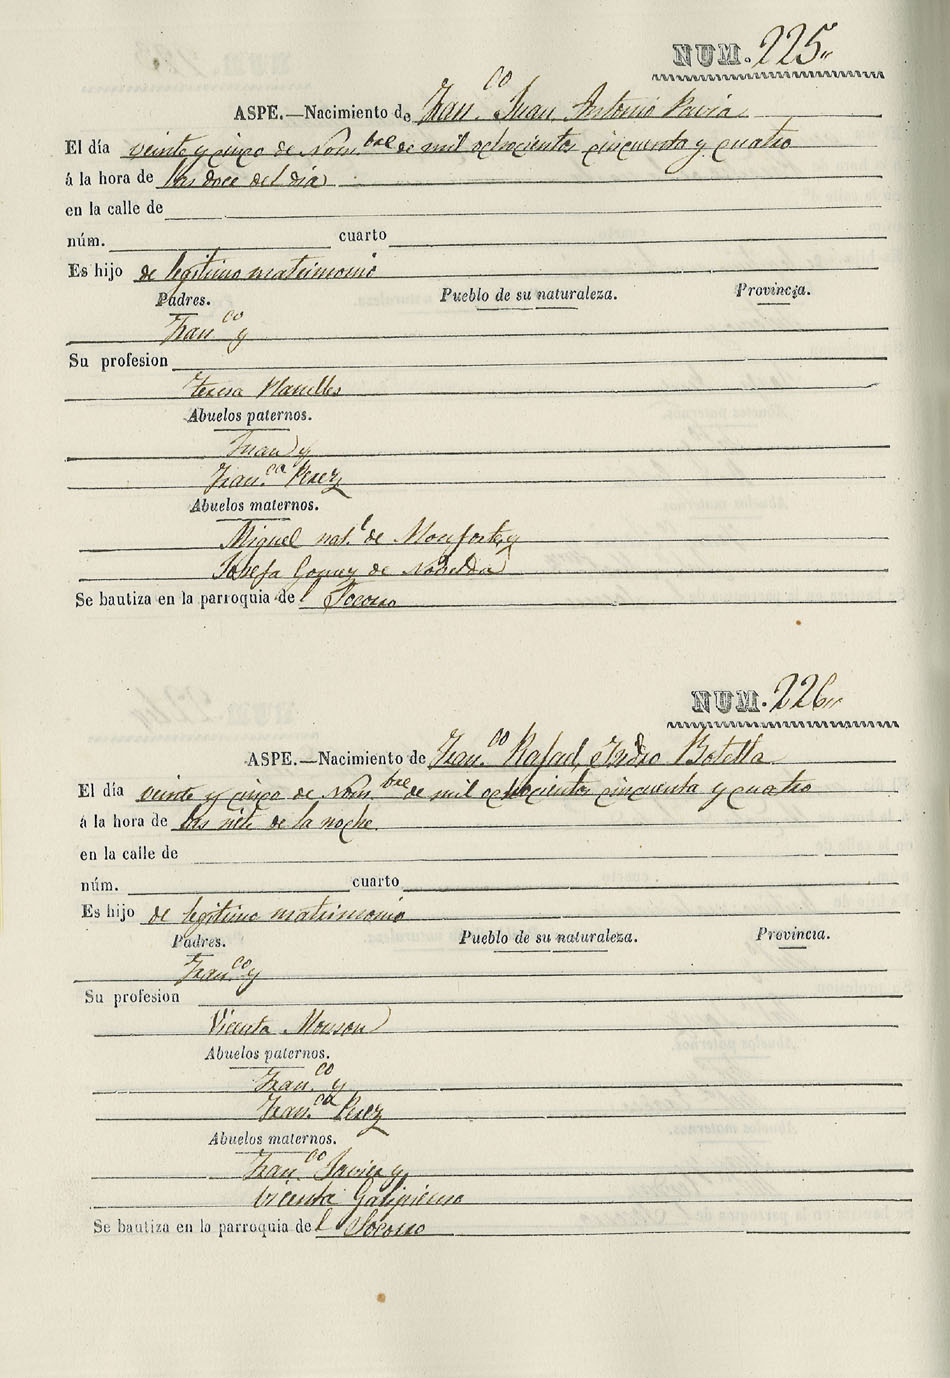 NUM. 225
ASPE.—Nacimiento de Fran.co Juan Antonio Pavia
El día veinte y cinco de Nom.bre de mil ochocientos cincuenta y cuatro
á la hora de las doce del dia
en la calle de
núm. cuarto
Es hijo de legitimo matrimonio
Padres. Pueblo de su naturaleza. Provincia.
Fran.co y
Su profesion
Teresa Planelles
Abuelos paternos.
Juan y
Fran.ca Perez
Abuelos maternos.
Miguel nat.l de Monforte y
Josefa Gomez de Novelda
Se bautiza en la parroquia del Socorro
NUM. 226
ASPE.—Nacimiento de Fran.co Rafael, Isidro Botella
El día veinte y cinco de Nom.bre de mil ochocientos cincuenta y cuatro
á la hora de las siete de la noche
en la calle de
núm. cuarto
Es hijo de legitimo matrimonio
Padres. Pueblo de su naturaleza. Provincia.
Fran.co y
Su profesion
Vicenta Monson
Abuelos paternos.
Fran.co y
Fran.ca Perez
Abuelos maternos.
Fran.co Javier y
Vicenta Galipienso
Se bautiza en la parroquia del Socorro